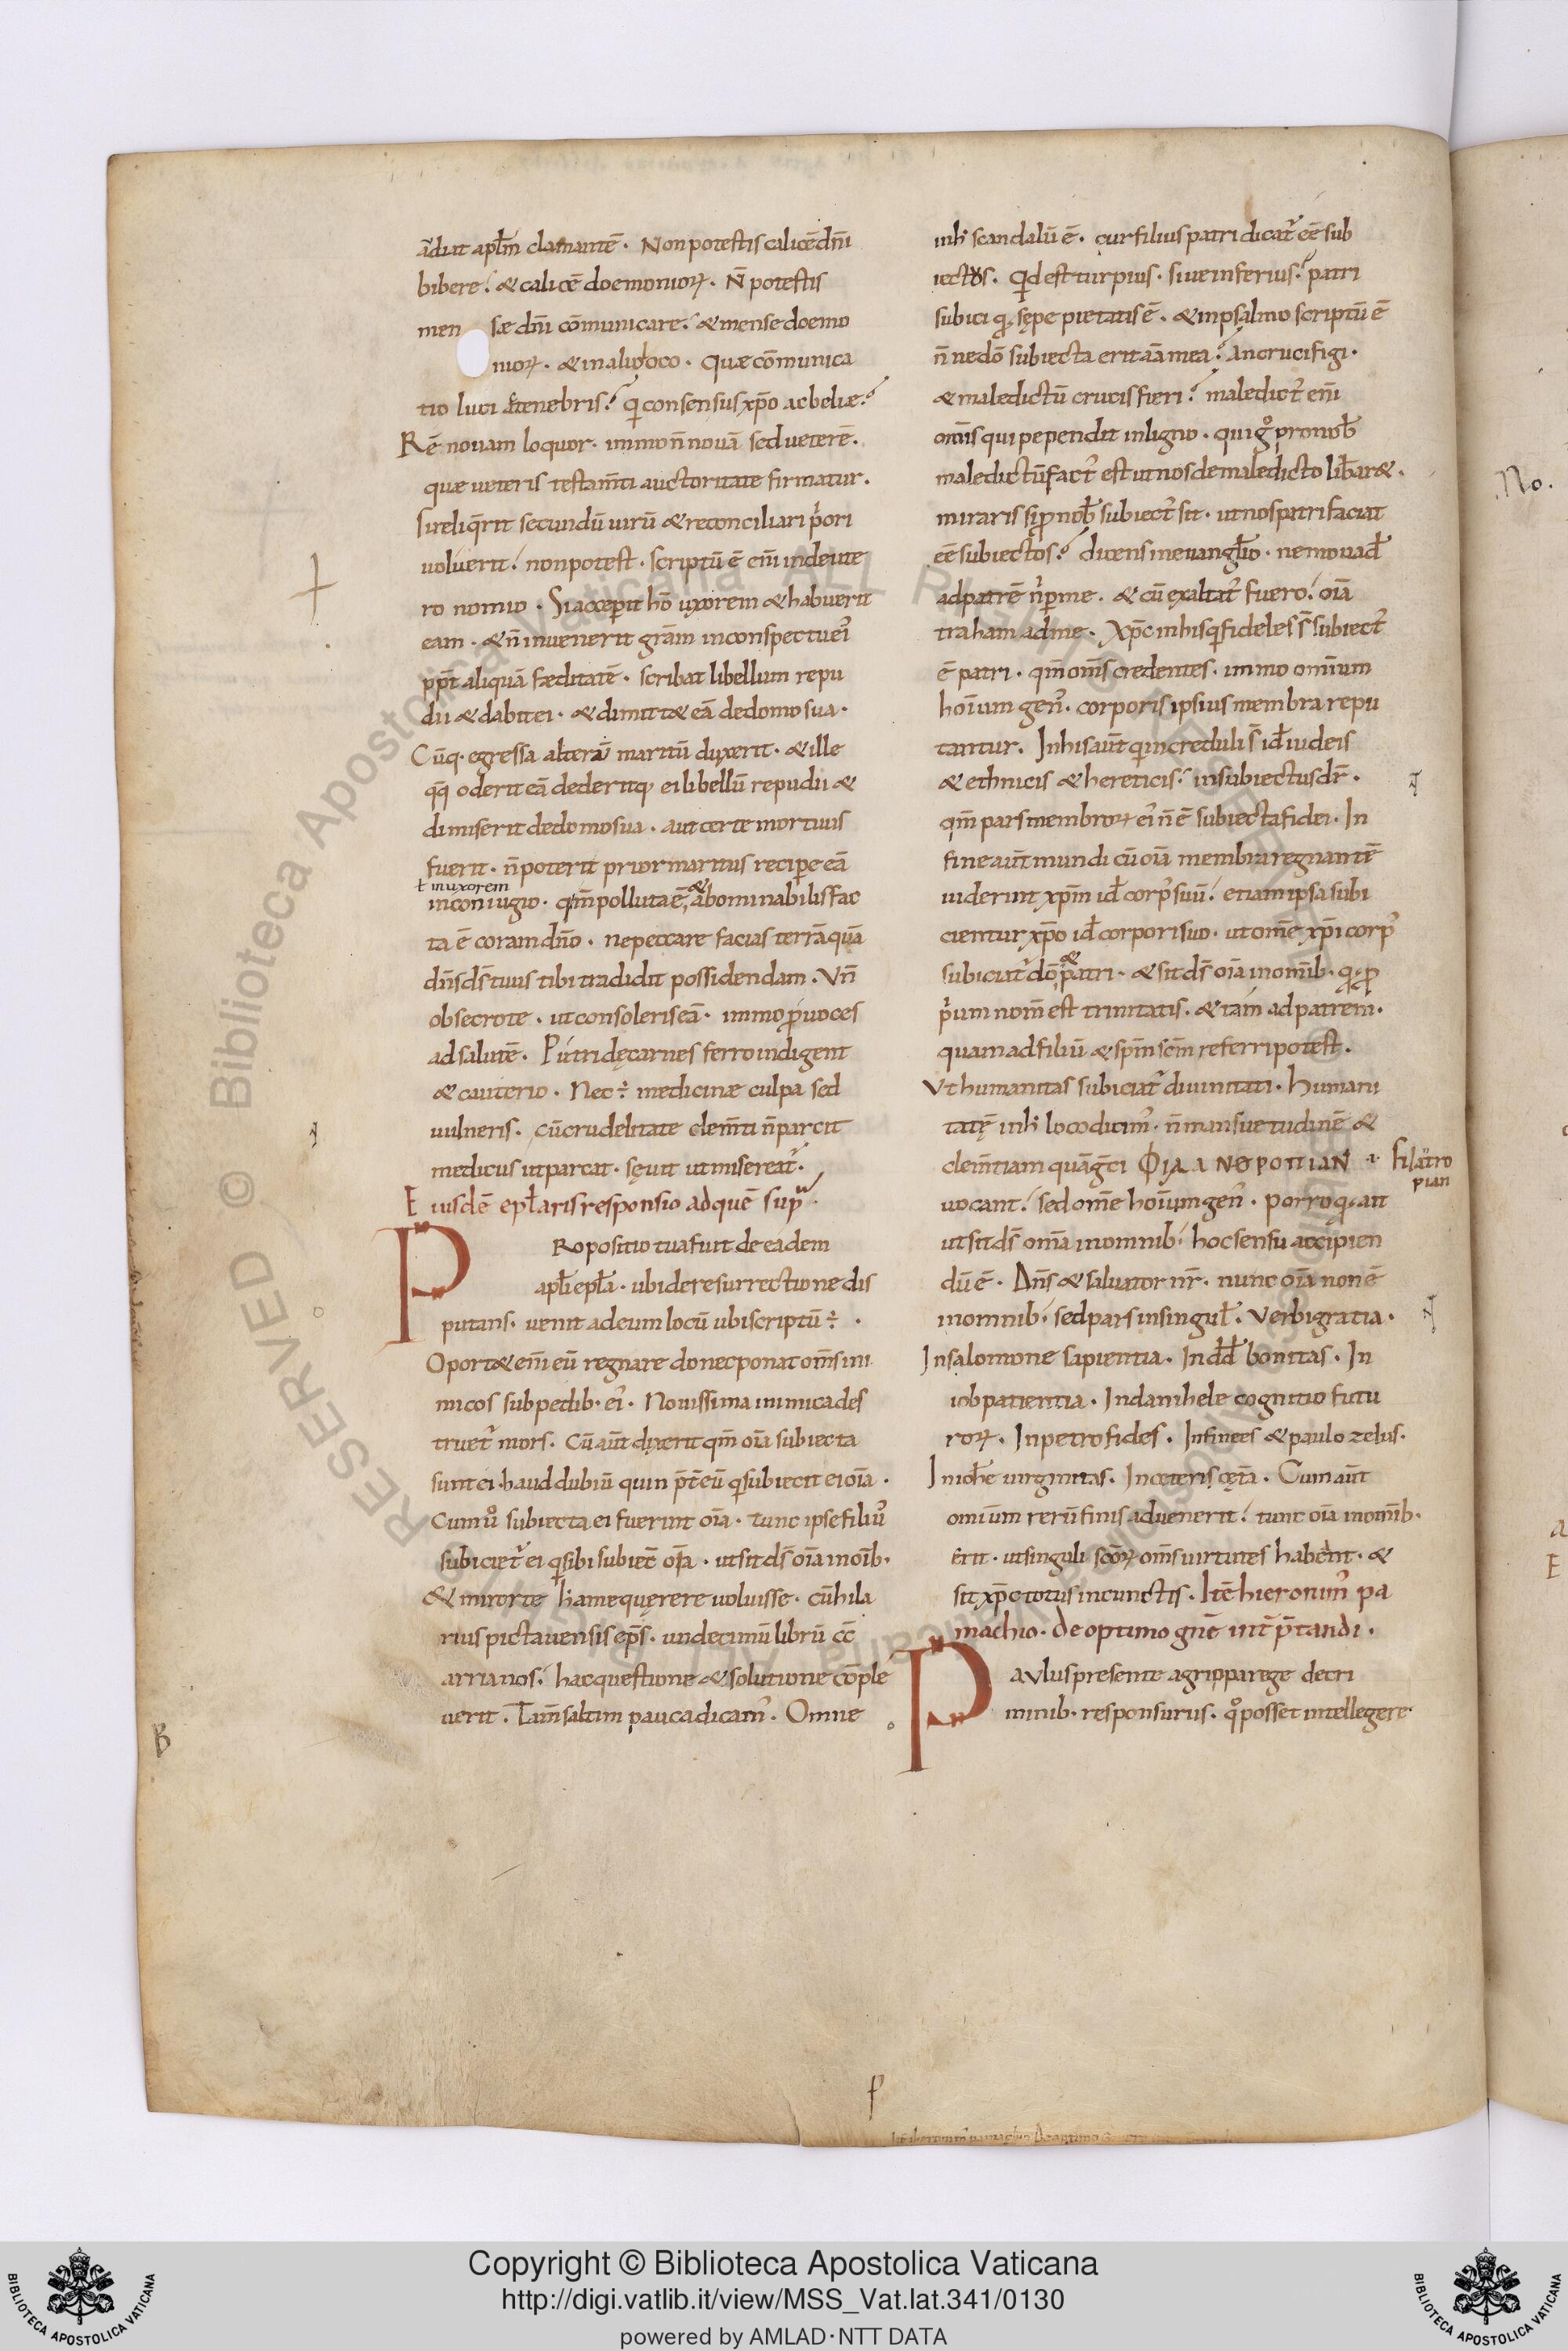 audiat apłm clamantē. Non potestis calicē dñi
bibere: & calicē doemonioꝝ. N̄ potestis
men sæ dñi cōmunicare: & mense doemo
nioꝝ. & in alio loco. Quæ cōmunica
tio luci & tenebris? q consensus xp̄o ac beliæ?
Rē nouam loquor. immo n̄ nouā sed ueterē.
quæ ueteris testam̄ti auctoritate firmatur.
Si reliq̄rit secundū uirū & reconciliari p̓ori
uoluerit: non potest. scriptū ē eni̅ in deute
ro nomio. Si acceperit hō uxorem & habuerit
eam. & n̄ inuenerit grām in conspectu ei᾽
pp̄t aliquā fæditatē. scribat libellum repu
dii & dabit ei. & dimittæ eā de domo sua.
Cūq. egressa alterū maritū duxerit. & ille
q̄q oderit eā dederitq; ei libellū repudii &
dimiserit de domo sua. aut certe mortuus
fuerit. n̄ poterit prior maritus recipe eā
ł in uxorem
in coniugio. qm̄ polluta ē, & abominabilis fac
ta ē coram dn̄o. ne peccare facias terrā quā
dn̄s ds̄ tuus tibi tradidit possidendam. Vn̄
obsecro te. ut consoleris eā. immo ꝓuoces
ad salutē. Putridę carnes ferro indigent
& cauterio. Nec ÷ medicinæ culpa sed
uulneris. cū crudelitate clem̄ti n̄ parcit
medicus ut parcat. sęuit ut misereat᾽.
Eiusdē epłaris responsio ad quē supͣ.
PRopositio tua fuit de eadem
apłi epła. ubi de resurrectione dis
putans. uenit ad eum locū ubi scriptū ÷.
Oport& eni̅ eū regnare donec ponat om̄s ini
micos sub pedib. ei᾽. Nouissima inimica des
truet᾽ mors. Cū aūt dixerit qm̄ oīa subiecta
sunt ei. haud dubiū quin p̄t eū q subiecit ei oīa.
Cum u̓o subiecta ei fuerint oīa. tunc ipse filiu᾽
subiciet᾽ ei q sibi subiec̄ oīa. ut sit ds̄ oīa in oīb.
& miror te h̓ a me quęrere uoluisse. cū hila
rius pictauensis ep̄s. undecimū librū cc̄
arrianos: hac questione & solutione cōple
uerit. Tam̄ saltim pauca dicam᾽. Omne
in h̓ scandalū ē. cur filius patri dicat᾽ eē sub
iectus. Qid est turpius. siue inferius? patri
subici q̨. sępe pietatis ē. & in psalmo scriptū ē
n̄ ne dō subiecta erit aīa mea? an crucifigi.
& maledictū crucis fieri? maledict᾽ eni̅
om̄is qui pependit in ligno. qui g̊ pro nob̄
maledictū fact᾽ est ut nos de maledicto lib̄aræ.
miraris si ꝓ nob̄ subiect᾽ sit. ut nos patri faciat
eē subiectos? dicens in euanglio. nemo uad̄
ad patrē n̓ per me. & cū exaltat᾽ fuero: oīa
traham ad me. Xp̄c in his q fideles s̄ subiect᾽
ē patri. qm̄ om̄s credentes. immo omium
hoīum gen᾽. corporis ipsius membra repu
tantur. In his aūt q increduli s̄ id̄ iudeis
& ethnicis & hereticis: insubiectus dr̄.
qm̄ pars membroꝝ ei᾽ n̄ ē subiecta fidei. In
fine aūt mundi cū oīa membra regnantē
uiderint xp̄m id̄ corp᾽ suū: etiam ipsa subi
cientur xp̄o id̄ corpori suo. ut om̄e xp̄i corp᾽
subiciat᾽ dō & patri. & sit ds̄ oīa in omib. q̨. ꝓ
p̓um nom̄ est trinitatis. & tam ad patrem.
quam ad filiū & spm̄ scm̄ referri potest.
Vt humanitas subiciat᾽ diuinitati. humani
tatę in h̓ loco dicim᾽. n̄ mansuetudinē &
clem̄tiam quā gc̄i ΦΙΛΑΝΘΡΟΠΙΑΝ
filatro
pian
uocant: sed om̄e hoīum gen᾽. porro q̨. ait
ut sit ds̄ om̄a in omnib: hoc sensu accipien
dū ē. Dn̄s & saluator nr̄. nunc oīa non ē
in omnib: sed pars in singuł. Verbi gratia.
In salomone sapientia. In dd̄ bonitas. In
iob patientia. In danihele cognitio futu
roꝝ. In petro fides. In finees & paulo zelus.
In ioh̄e uirginitas. In ceteris cęt̄a. Cum aūt
omium rerū finis aduenerit: tunc oīa in omib.
erit. ut singuli scōꝝ om̄s uirtutes habent. &
sit xp̄c totus in cunctis. Itē hieronim᾽ pa
machio. de optimo gn̄e int̄p̄tandi.
Paulus presente agrippa rege de cri
minib. responsurus. q̊ posset intellegere
No.
B
Copyright © Biblioteca Apostolica Vaticana
http://digi.vatlib.it/view/MSS_Vat.lat.341/0130
powered by AMLAD·NTT DATA
BIBLIOTECA APOSTOLICA VATICANA
BIBLIOTECA APOSTOLICA VATICANA